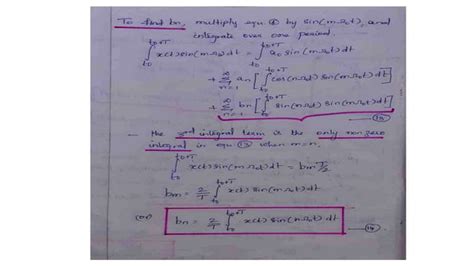 To find bn, multiply equ ④ by sin(mΩ₀t), and
integrate over one period.
∫_{t₀}^{t₀+T} x(t) sin(mΩ₀t)dt = ∫_{t₀}^{t₀+T} a₀ sin(mΩ₀t)dt
+ Σ_{n=1}^{∞} an [∫_{t₀}^{t₀+T} cos(nΩ₀t) sin(mΩ₀t)dt]
+ Σ_{n=1}^{∞} bn [∫_{t₀}^{t₀+T} sin(nΩ₀t) sin(mΩ₀t)dt]
— ⑬
— The integral term is the only non zero
integral in equ ⑬ when m=n.
∫_{t₀}^{t₀+T} x(t) sin(mΩ₀t)dt = bm T/2
bm = 2/T ∫_{t₀}^{t₀+T} x(t) sin(mΩ₀t)dt
(or) bn = 2/T ∫_{t₀}^{t₀+T} x(t) sin(nΩ₀t) dt — ⑭